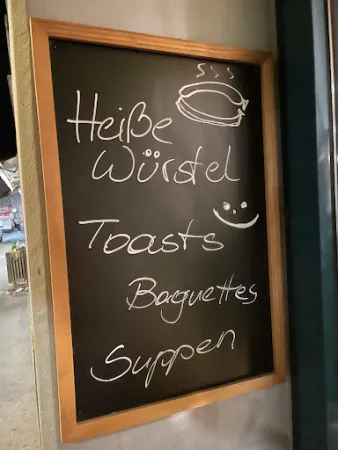 Heiße
Würstel
Toasts
Baguettes
Suppen